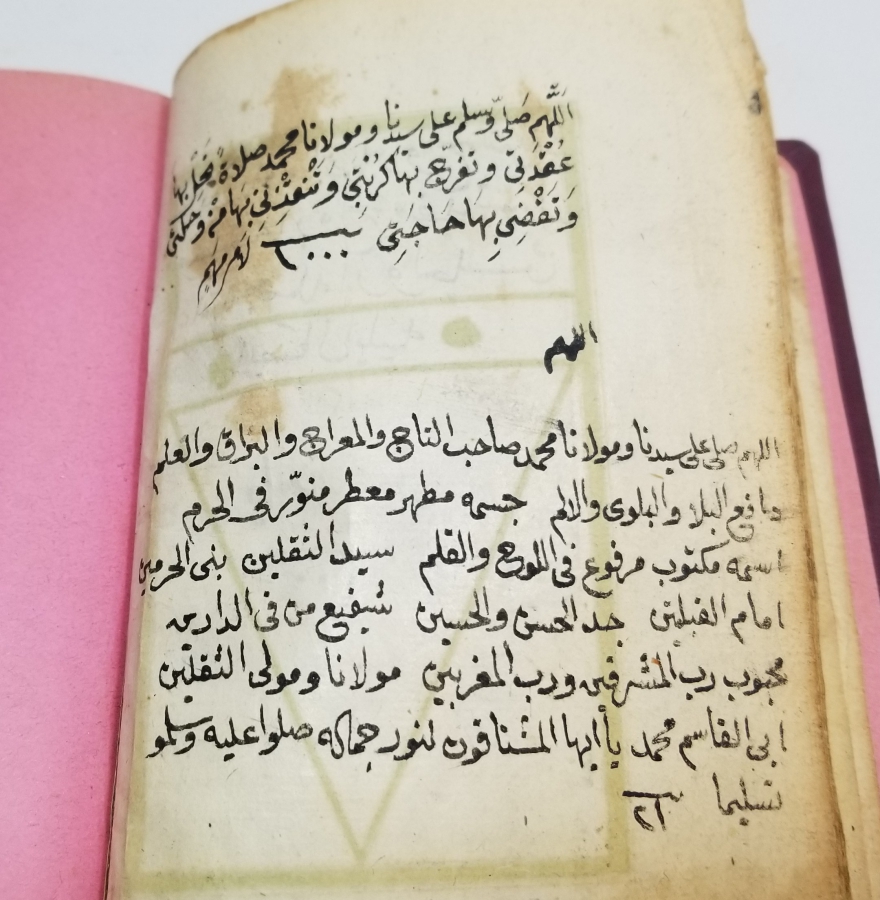 اللَّهم صَلِّ وسلم على سيدنا ومولانا محمد صلاةً تحل بها
عُقْدَتي وتفرّج بها كُرْبَتي وتُنْقِذُني بها مِنْ وَحْلَتي
وَتَقْضي بِهَا حَاجَتي ١٠٠٠ لامر مهم
اللهم
اللهم صلى على سيدنا ومولانا محمد صاحب التاج والمعراج والبراق والعلم
دافع البلا والبلوى والالم جسمه مطهر معطر منوّر في الحرم
اسمه مكتوب مرفوع في اللوح والقلم سيد الثقلين بنى الحرمين
امام القبلتين جد الحسن والحسين شفيع من في الدارين
محبوب رب المشرقين ورب المغربين مولانا ومولى الثقلين
ابي القاسم محمد يأايها المشتاقون لنور جماله صلوا عليه وسلمو
تسليما ٢١